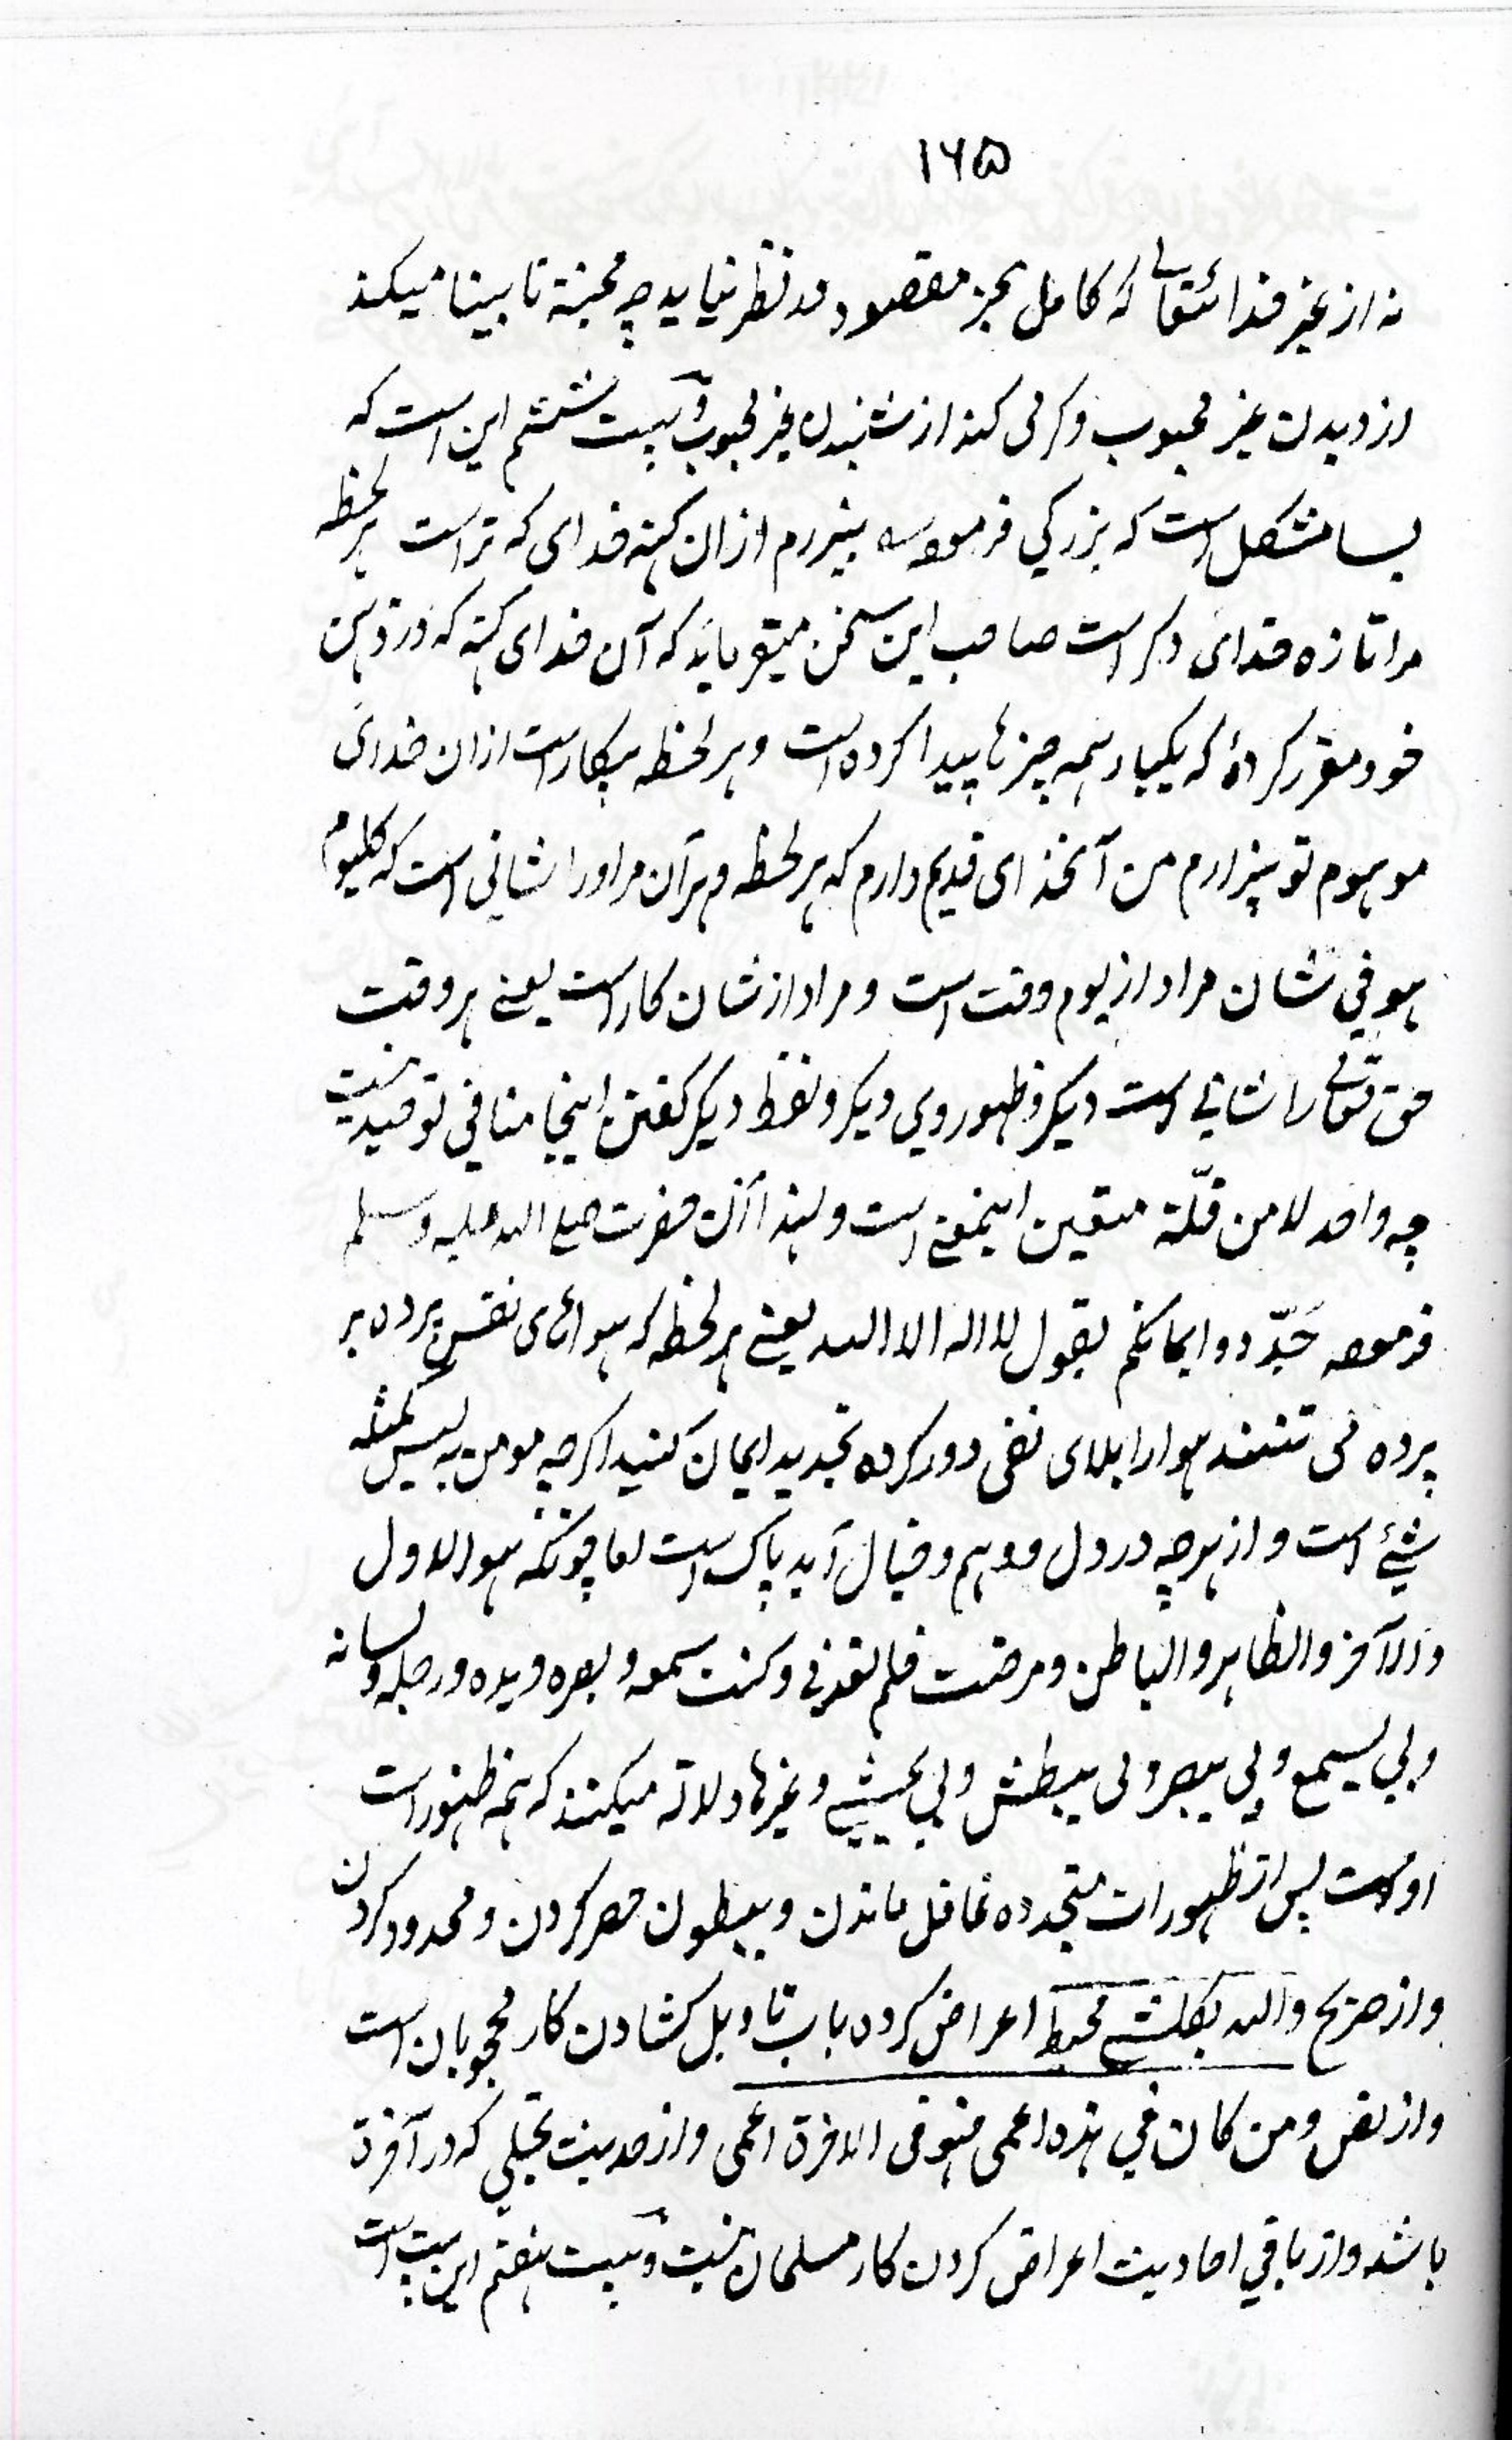 ۱۶۵
نه از غیر خدائتعالے که کامل بجز مقصود مد نظر نیاید چه محبته نابینا میکند
از دیدن غیر محبوب و کر می کند از شنیدن غیر محبوب و بیت ششم این است که
بسا مشکل است که بزرکي فرموده بیزارم ازان کهنه خدای که تراست هر لحظه
مرا تازه خدای دکر است صاحب این سخن میفرماید که آن خدای کهنه که در ذهن
خود مقرر کردهٔ که یکبار همه چیزها پیدا کرده است و هر لحظه بیکار است ازان خدای
موهوم تو بیزارم من آنخدای قدیم دارم که هر لحظه و هر آن مراورا شانی است که کلیوم
هو في شان مراد از یوم وقت است و مراد از شان کار است یعنے هر وقت
حق تعالے را شانے است دیکر و ظهوروی دیکر و لفظ دیکر کفتن اینجا منافي توحید نیست
چه واحد لا من قلّة متعین اینمعنے است و لهذا آن حضرت صلے الله علیه وسلم
فرموده جَدّدوا ایمانکم بقول لا اله الا الله یعنے هر لحظه که هوائ‌ی نفس پرده بر
پرده می تنند هوا را بلای نفی دور کرده تجدید ایمان کنید اکرچه مومن به لیس کمثله
شيئے است و از هرچه در دل و وهم و خیال آید پاک است اما چونکه هو الاول
و الآخر و الظاهر و الباطن و مرضت فلم تعدنی و کنت سمعه و بصره و یده و رجله و لسانه
و بي یسمع و بي یبصر و بی یبطش و بي یمشے و غیرها دلالة میکنند که همه ظهور است
اوست پس از ظهورات متجدده غافل ماندن و ببطون حصر کردن و محدود کردن
و از صریح والله بکلشے محیط اعراض کرده باب تاویل کشادن کار محجوبان است
و از نص و من کان في هذه اعمی فهو فی الاخرة اعمی و از حدیث تجلي که در آخرة
باشد و از باقي احادیث اعراض کردن کار مسلمان نیست و بیت هفتم این بیت است